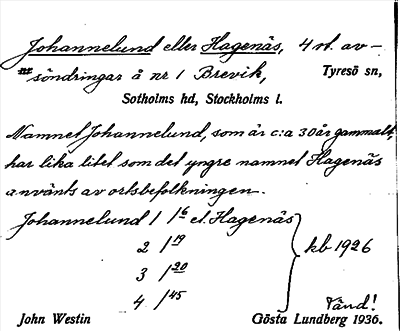 Johannelund eller Hagenäs, 4 st. av-
söndringar å nr 1 Brevik, Tyresö sn,
Sotholms hd, Stockholms l.
Namnet Johannelund, som är c:a 30 år gammalt,
har lika litet som det yngre namnet Hagenäs
använts av ortsbefolkningen.
Johannelund 1 1/6 el. Hagenäs
2 1/19
3 1/20 kb 1926
4 1/45 Vänd!
John Westin Gösta Lundberg 1936.